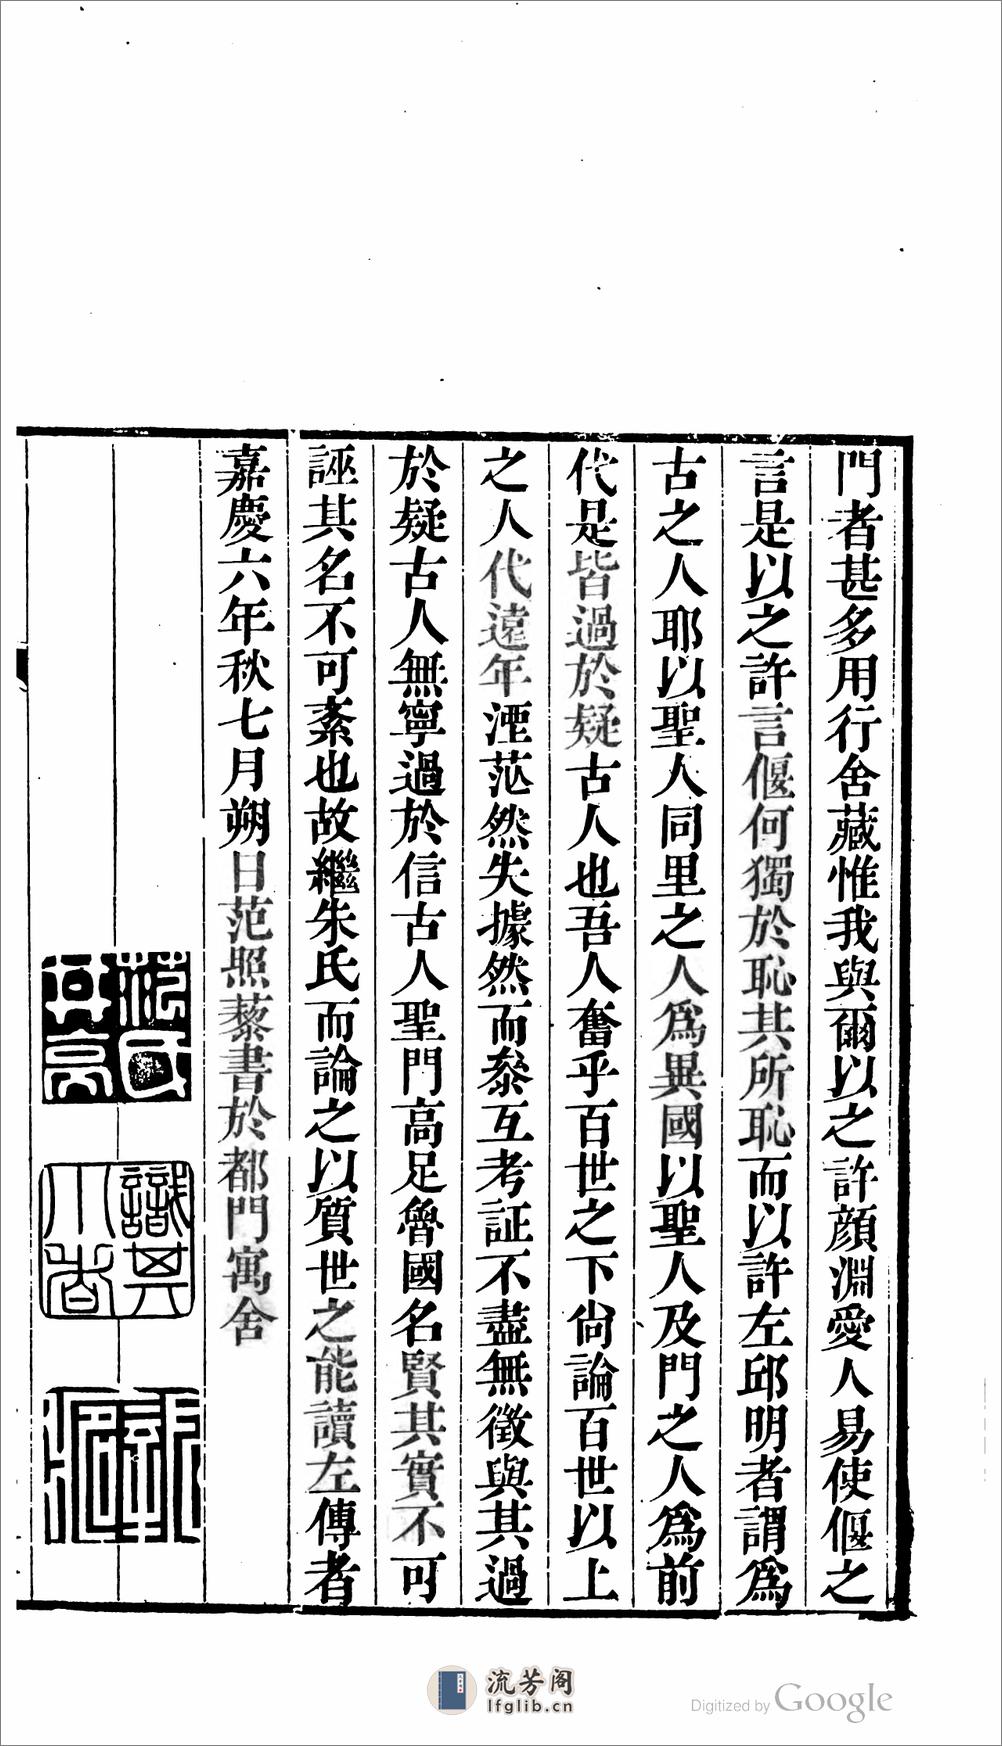 門者甚多用行舍藏惟我與爾以之許顔淵愛人易使偃之
言是以之許言偃何獨於恥其所恥而以許左邱明者謂爲
古之人耶以聖人同里之人爲異國以聖人及門之人爲前
代是皆過於疑古人也吾人奮乎百世之下尙論百世以上
之人代遠年湮茫然失據然而叅互考証不盡無徵與其過
於疑古人無寧過於信古人聖門高足魯國名賢其實不可
誣其名不可紊也故繼朱氏而論之以質世之能讀左傳者
嘉慶六年秋七月朔日范照藜書於都門寓舍
識其
小者
流芳阁
lfglib.cn
Digitized by Google